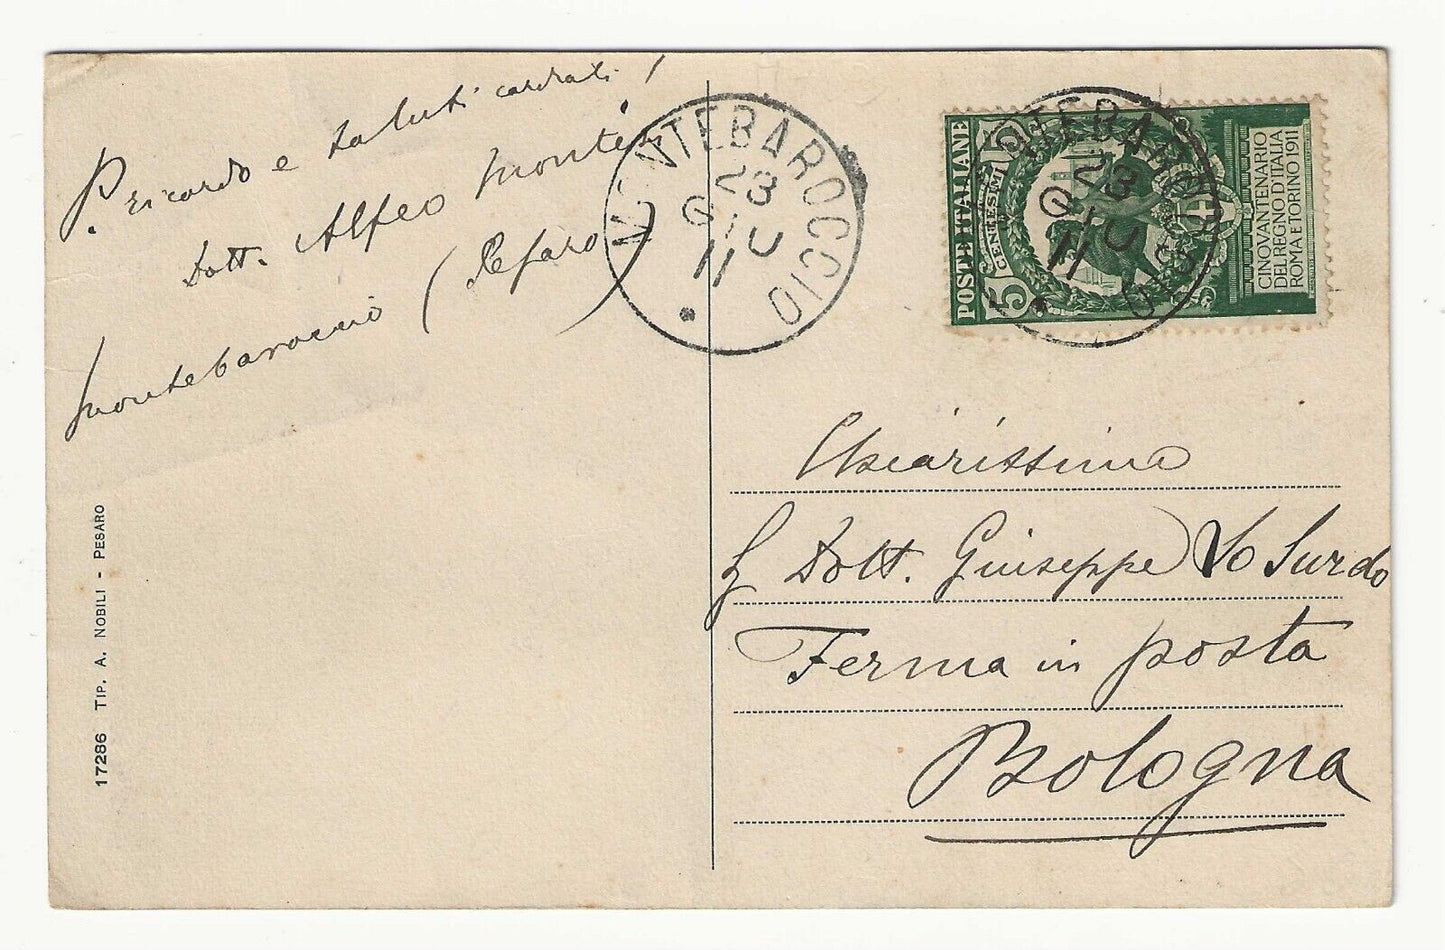 P. ricordo e saluti cordiali!
Dott. Alfeo Monteri
Montebaroccio (Pesaro)
MONTEBAROCCIO
23
GIU
11
POSTE ITALIANE
5 CENTESIMI 5
CINQVANTENARIO
DEL REGNO D'ITALIA
ROMA E TORINO 1911
MONTEBAROCCIO
23
GIU
11
Chiarissimo
Dott. Giuseppe Lo Surdo
Ferma in posta
Bologna
17286 TIP. A. NOBILI - PESARO